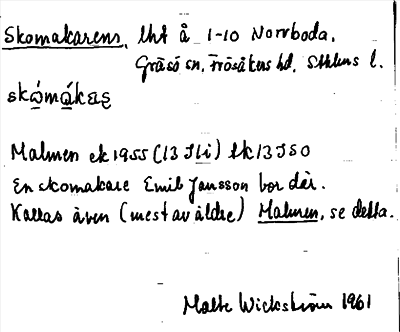 Skomakarens, lht å 1-10 Norrboda.
Gräsö sn, Frösåkers hd, Sthlms l.
skòmàkaṣ
Malmen ek 1955 (13 I 1i) Ek 13 I 5 0
En skomakare Emil Jansson bor där.
Kallas även (mest av äldre) Malmen, se detta.
Malte Wickström 1961